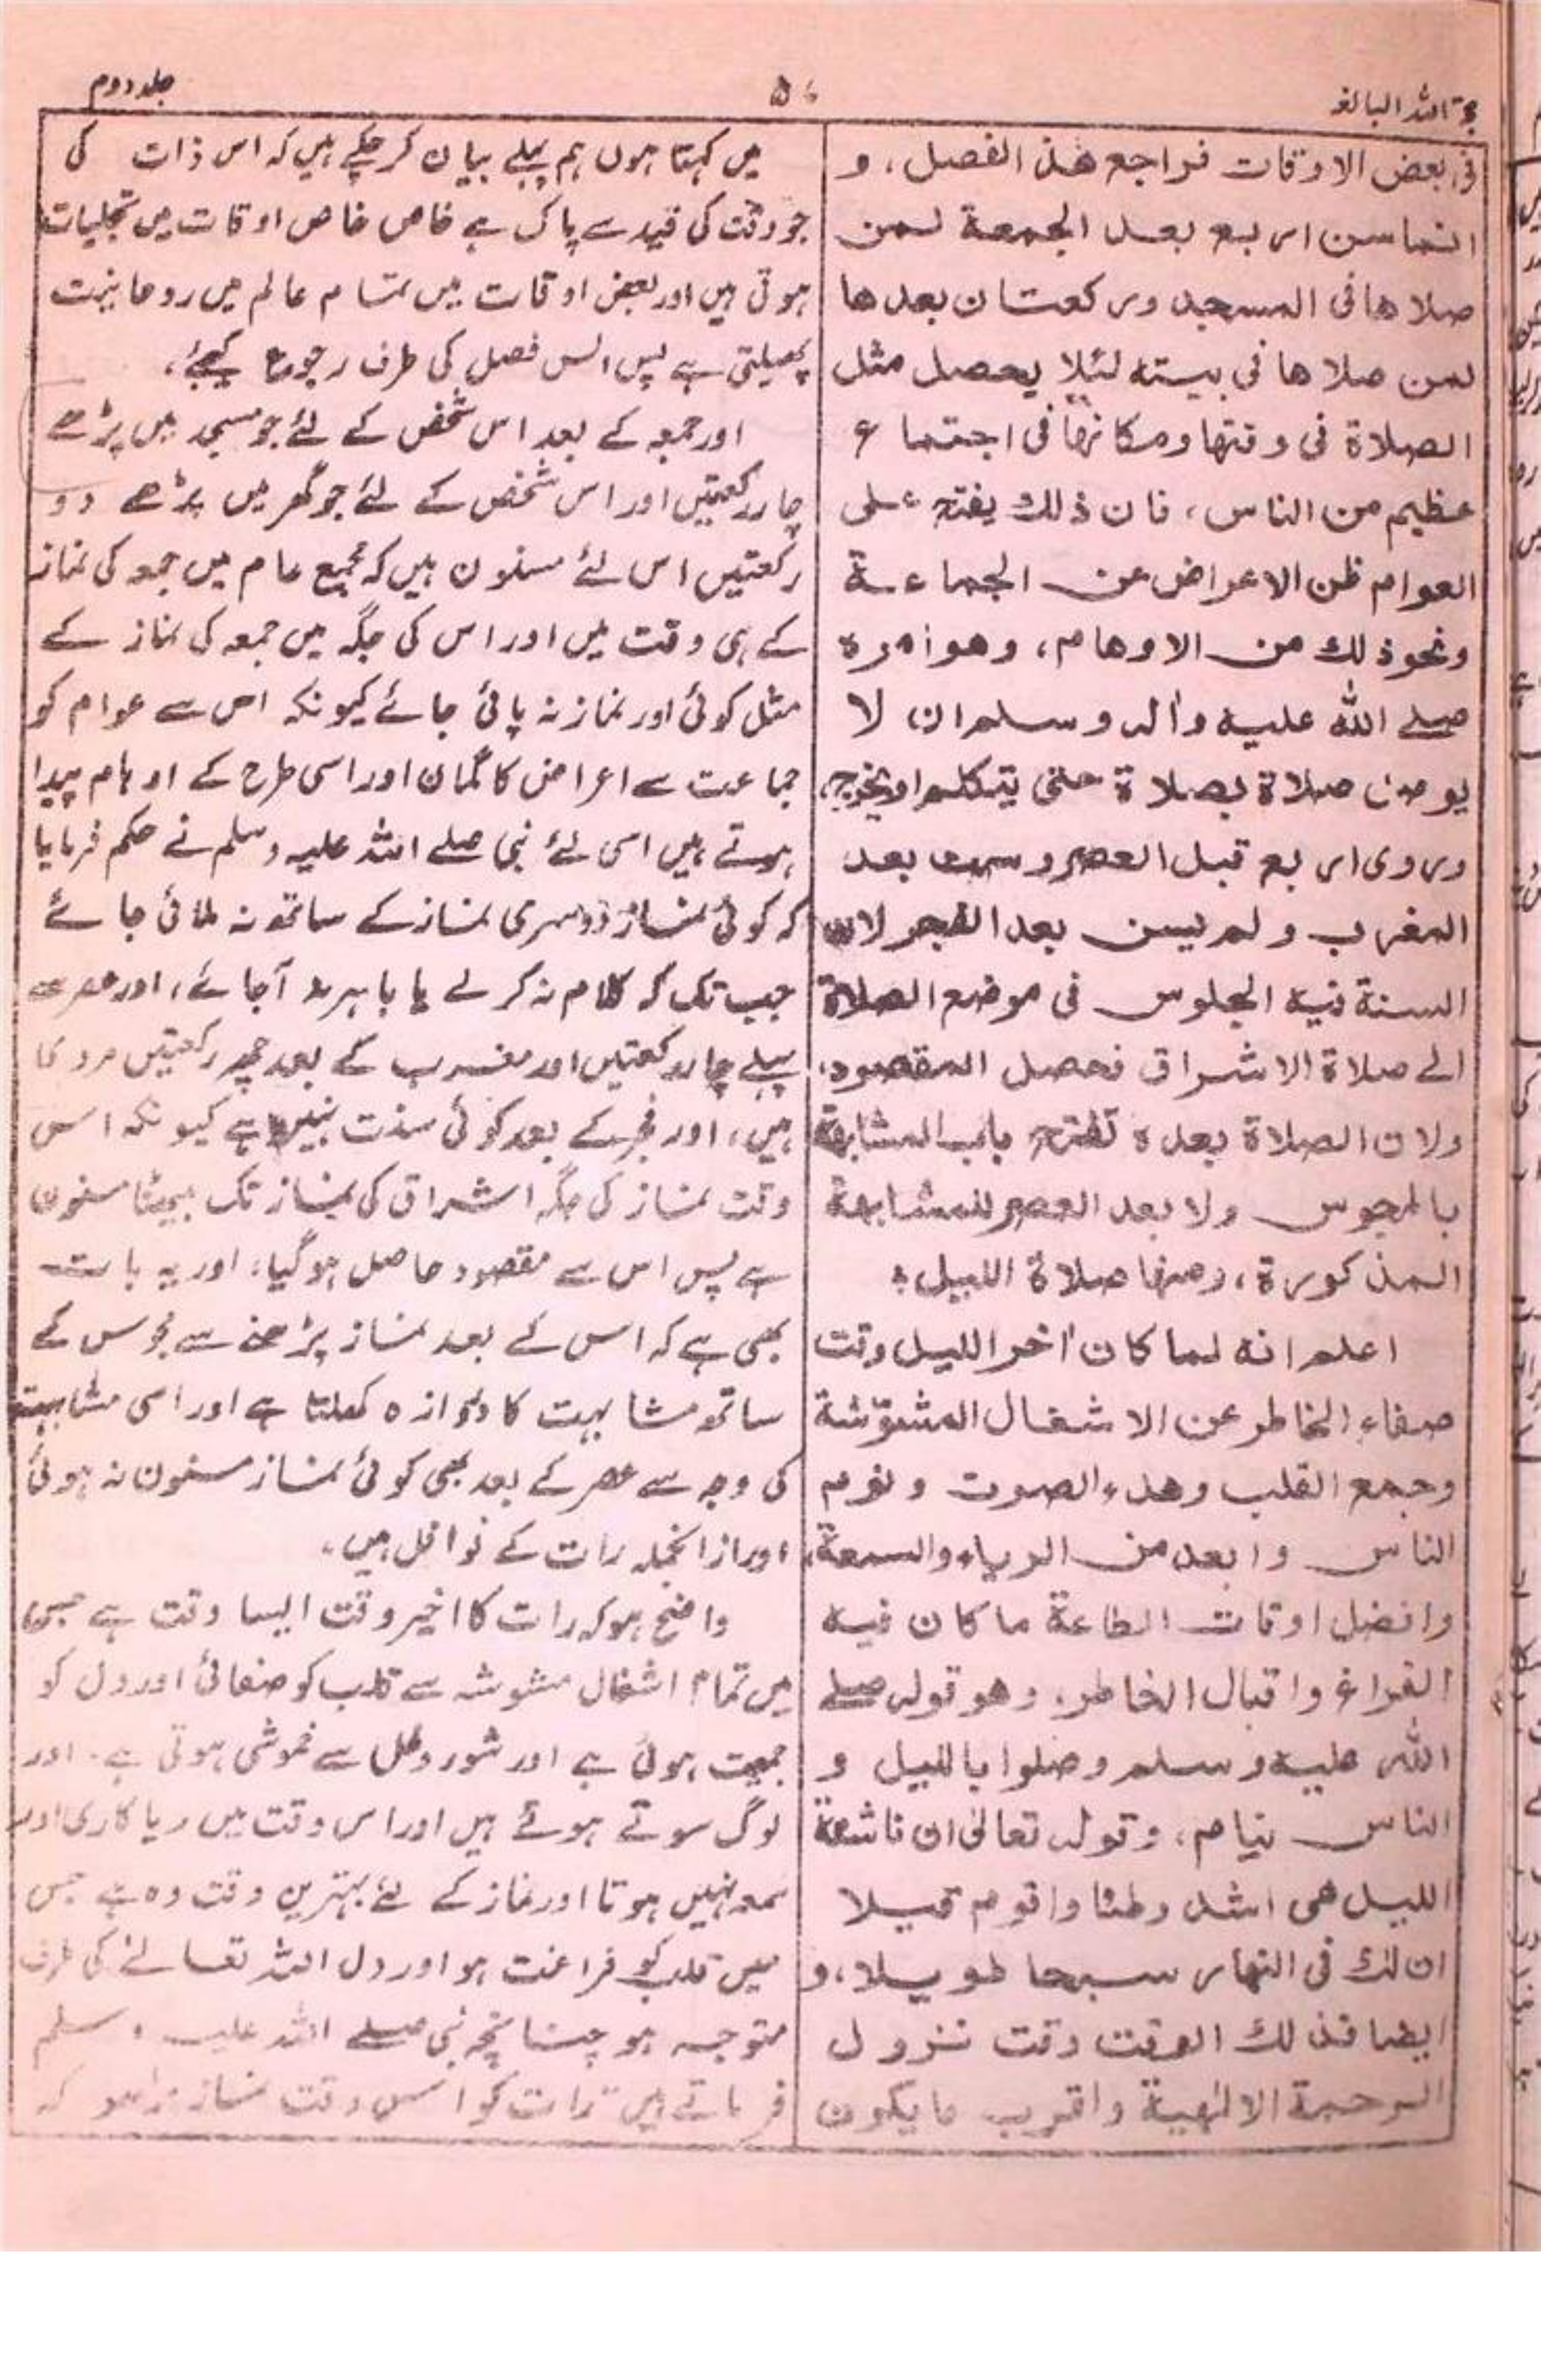 حجۃ اللہ البالغہ
۵۶
جلد دوم
فی بعض الاوقات فراجع هذا الفصل، و
انما سن اربع بعد الجمعة لمن
صلاها فی المسجد ورکعتان بعدها
لمن صلاها فی بیته لئلا یحصل مثل
الصلاة فی وقتها ومکانها فی اجتماع
عظیم من الناس، فان ذلك یفتح علی
العوام ظن الاعراض عن الجماعة
ونحو ذلك من الاوهام، وهو امره
صلے الله علیه واله وسلم ان لا
یوصل صلاة بصلاة حتی یتکلم او یخرج،
وروی اربع قبل العصر وست بعد
المغرب ولم یسن بعد الفجر لان
السنة فیه الجلوس فی موضع الصلاة
الے صلاة الاشراق فحصل المقصود،
ولان الصلاة بعده تفتح باب المشابهة
بالمجوس ولا بعد العصر للمشابهة
المذکورة، ومنها صلاة اللیل؛
اعلم انه لما کان اٰخر اللیل وقت
صفاء الخاطر عن الاشغال المشوّشة
وجمع القلب وهدء الصوت ونوم
الناس وابعد من الریاء والسمعة،
وافضل اوقات الطاعة ما کان فیه
الفراغ واقبال الخاطر، وهو قوله صلے
الله علیه وسلم وصلوا باللیل و
الناس نیام، وقوله تعالیٰ ان ناشئة
اللیل هی اشد وطئا واقوم قیلا
ان لك فی النهار سبحا طویلا، و
ایضا فذلك الوقت وقت نزول
الرحمة الالٰهیة واقرب ما یکون
میں کہتا ہوں ہم پہلے بیان کر چکے ہیں کہ اس ذات کی
جو وقت کی قید سے پاک ہے خاص خاص اوقات میں تجلیات
ہوتی ہیں اور بعض اوقات میں تمام عالم میں روحانیت
پھیلتی ہے پس اس فصل کی طرف رجوع کیجئے،
اور جمعہ کے بعد اس شخص کے لئے جو مسجد میں پڑھے
چار رکعتیں اور اس شخص کے لئے جو گھر میں پڑھے دو
رکعتیں اس لئے مسنون ہیں کہ مجمع عام میں جمعہ کی نماز
کے ہی وقت میں اور اس کی جگہ میں جمعہ کی نماز کے
مثل کوئی اور نماز نہ پائی جائے کیونکہ اس سے عوام کو
جماعت سے اعراض کا گمان اور اسی طرح کے اوہام پیدا
ہوتے ہیں اسی لئے نبی صلے اللہ علیہ وسلم نے حکم فرمایا
کہ کوئی نماز دوسری نماز کے ساتھ نہ ملائی جائے
جب تک کہ کلام نہ کر لے یا باہر نہ آجائے، اور عصر سے
پہلے چار رکعتیں اور مغرب کے بعد چھ رکعتیں مروی
ہیں، اور فجر کے بعد کوئی سنت نہیں ہے کیونکہ اس
وقت نماز کی جگہ اشراق کی نماز تک بیٹھنا مسنون
ہے پس اس سے مقصود حاصل ہوگیا، اور یہ بات
بھی ہے کہ اس کے بعد نماز پڑھنے سے مجوس کے
ساتھ مشابہت کا دروازہ کھلتا ہے اور اسی مشابہت
کی وجہ سے عصر کے بعد بھی کوئی نماز مسنون نہ ہوئی
اور ازانجملہ رات کے نوافل ہیں،
واضح ہو کہ رات کا اخیر وقت ایسا وقت ہے جس
میں تمام اشغال مشوشہ سے قلب کو صفائی اور دل کو
جمعیت ہوتی ہے اور شور و غل سے خموشی ہوتی ہے۔ اور
لوگ سوتے ہوئے ہیں اور اس وقت میں ریاکاری اور
سمعہ نہیں ہوتا اور نماز کے لئے بہترین وقت وہ ہے جس
میں قلب کو فراغت ہو اور دل اللہ تعالےٰ کی طرف
متوجہ ہو چنانچہ نبی صلے اللہ علیہ وسلم
فرماتے ہیں "رات کو اس وقت نماز پڑھو کہ